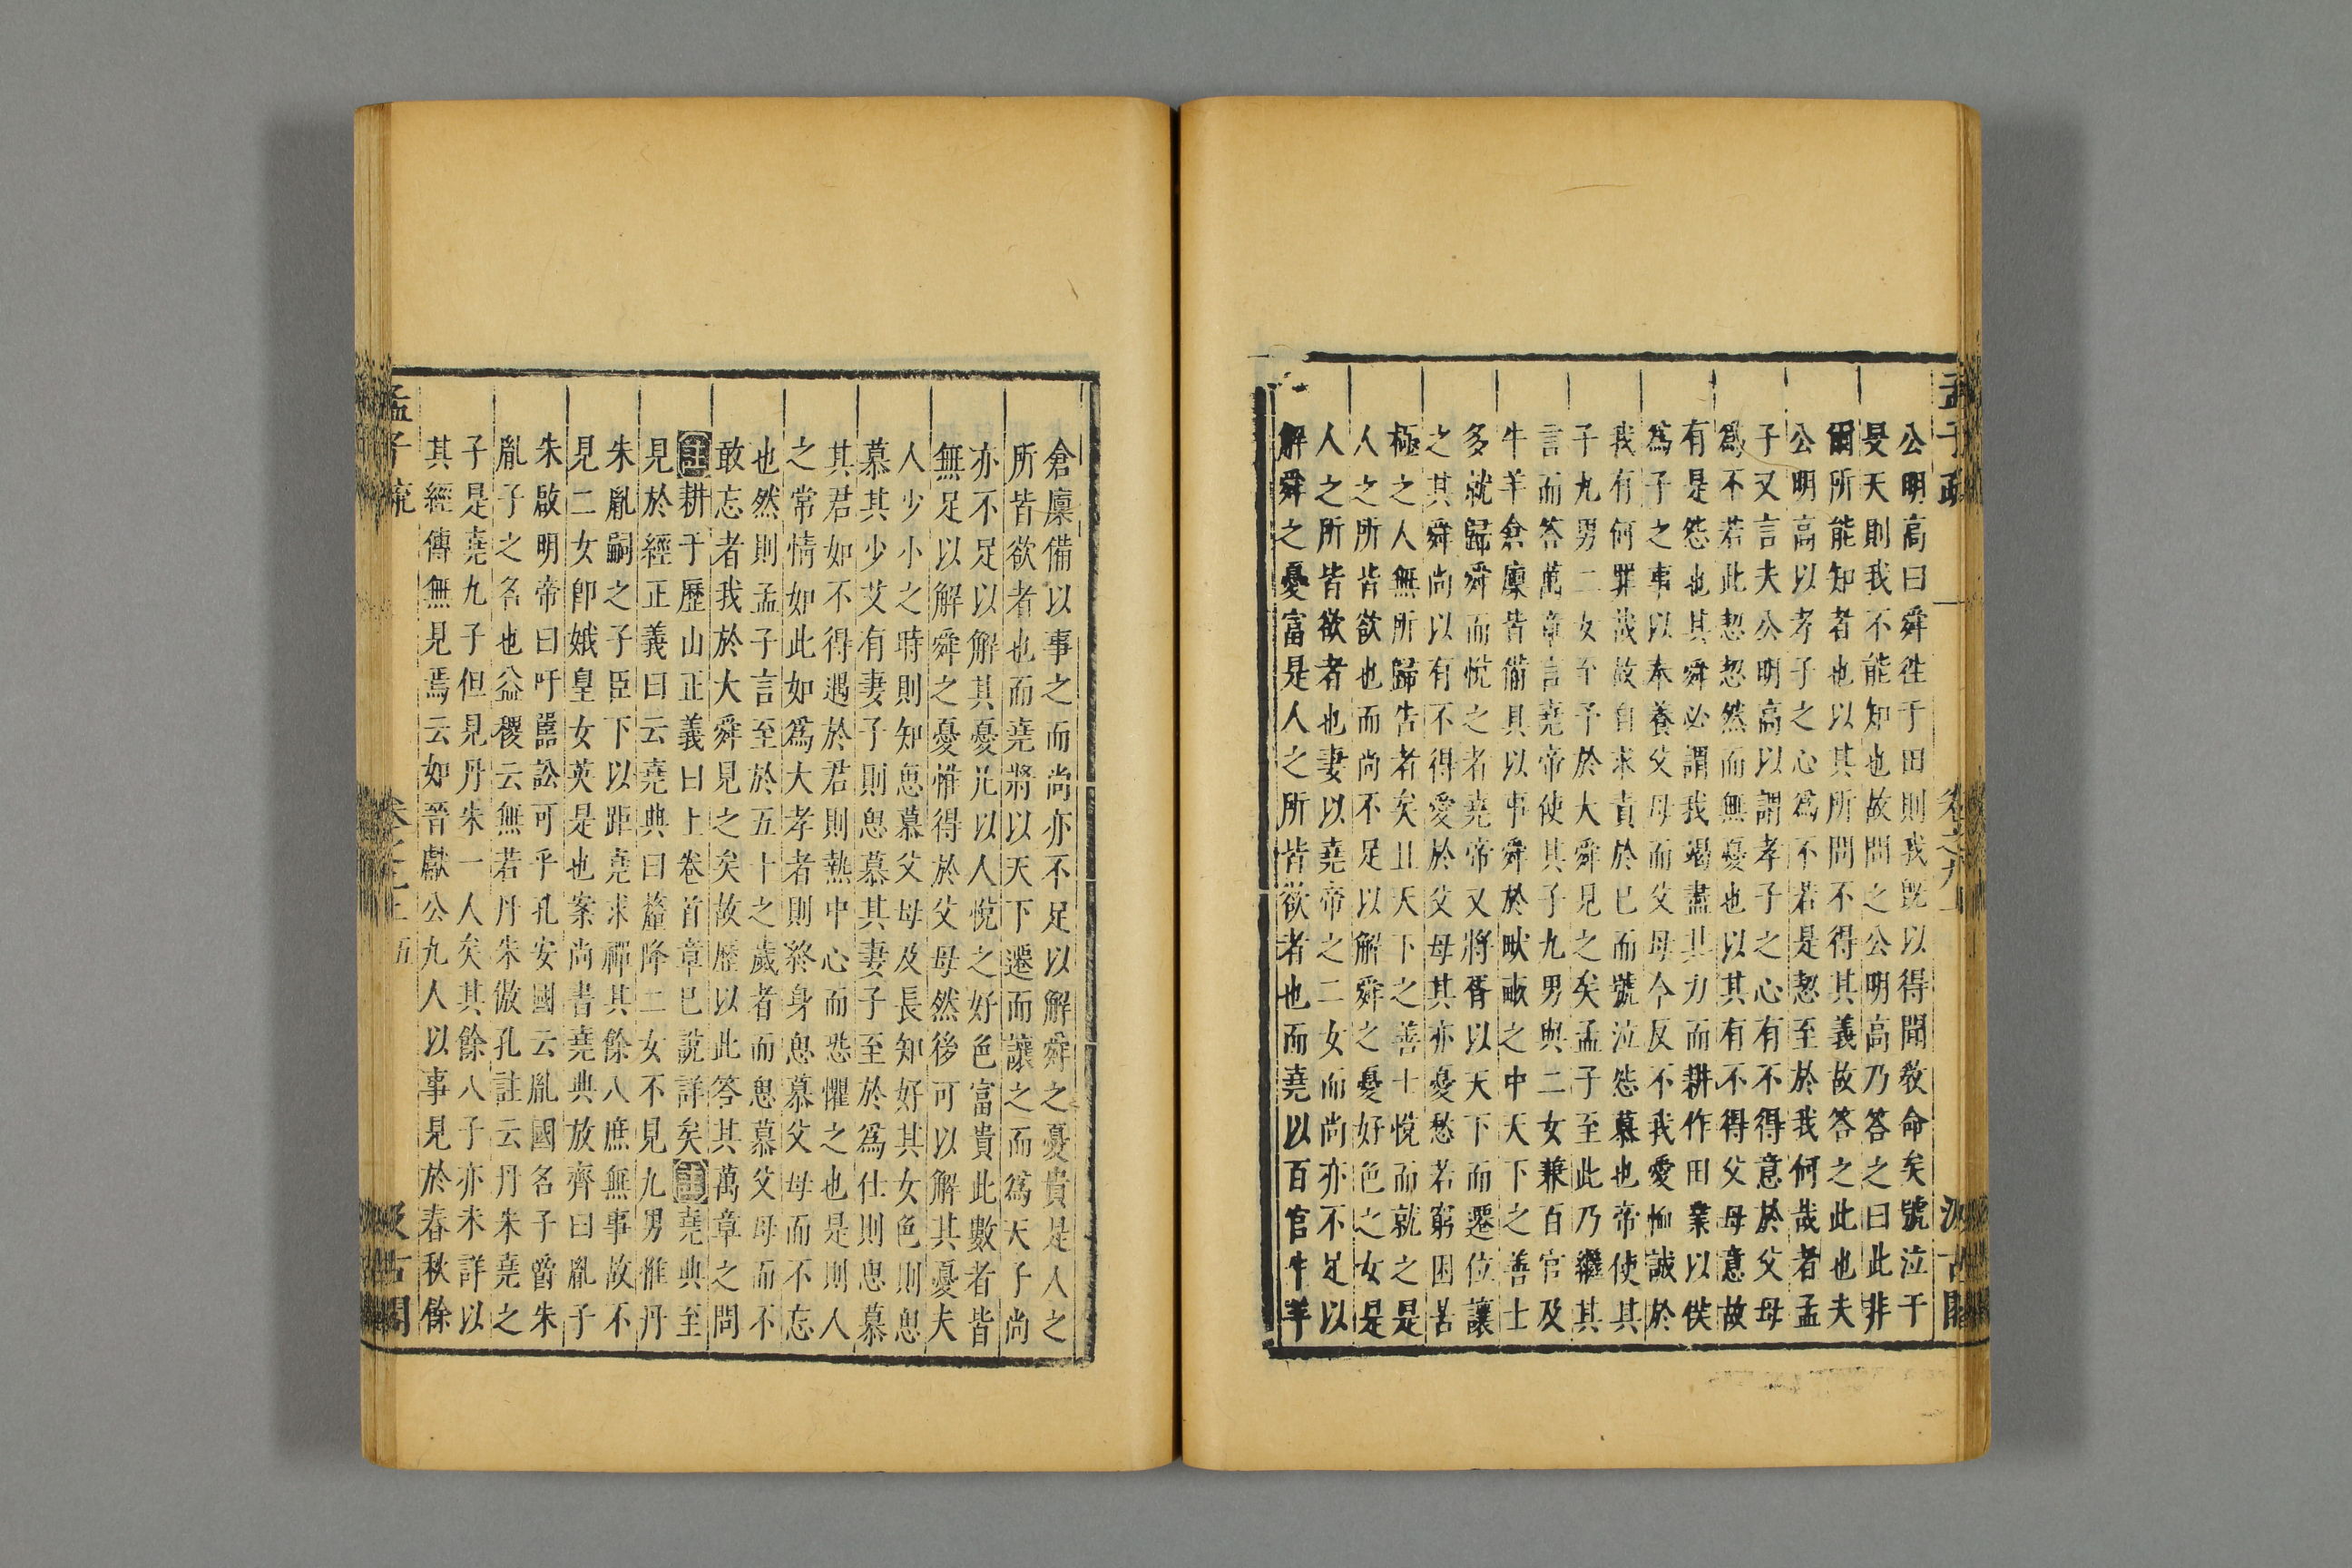 公明高曰舜徃于田則我旣以得聞敎命矣號泣于
旻天則我不能知也故問之公明高乃答之曰此非
爾所能知者也以其所問不得其義故答之此也夫
公明高以孝子之心爲不若是恝至於我何哉者孟
子又言夫公明高以謂孝子之心有不得意於父母
爲不若此恝恝然而無憂也以其有不得父母意故
有是怨也其舜必謂我竭盡其力而耕作田業以供
爲子之事以奉養父母而父母今反不我愛恤誠於
我有何罪哉故自求責於已而號泣怨慕也帝使其
子九男二女至予於大舜見之矣孟子至此乃繼其
言而答萬章言堯帝使其子九男與二女兼百官及
牛羊倉廩皆備具以事舜於畎畝之中天下之善士
多就歸舜而悅之者堯帝又將胥以天下而遷位讓
之其舜尚以有不得愛於父母其亦憂愁若窮困苦
極之人無所歸告者矣且天下之善士悅而就之是
人之所皆欲也而尚不足以解舜之憂好色之女是
人之所皆欲者也妻以堯帝之二女而尚亦不足以
解舜之憂富是人之所皆欲者也而堯以百官牛羊
倉廩備以事之而尚亦不足以解舜之憂貴是人之
所皆欲者也而堯將以天下遷而讓之而爲天子尚
亦不足以解其憂凡以人悅之好色富貴此數者皆
無足以解舜之憂惟得於父母然後可以解其憂夫
人少小之時則知思慕父母及長知好其女色則思
慕其少艾有妻子則思慕其妻子至於爲仕則思慕
其君如不得遇於君則熱中心而恐懼之也是則人
之常情如此如爲大孝者則終身思慕父母而不忘
也然則孟子言至於五十之歲者而思慕父母而不
敢忘者我於大舜見之矣故歷以此答其萬章之問
註耕于歷山正義曰上卷首章已說詳矣註堯典至
見於經正義曰云堯典曰釐降二女不見九男惟丹
朱胤嗣之子臣下以距堯求禪其餘八庶無事故不
見二女卽娥皇女英是也案尚書堯典放齊曰胤子
朱啟明帝曰吁嚚訟可乎孔安國云胤國名子爵朱
胤子之名也益稷云無若丹朱傲孔註云丹朱堯之
子是堯九子但見丹朱一人矣其餘八子亦未詳以
其經傳無見焉云如晉獻公九人以事見於春秋餘
孟子疏
五